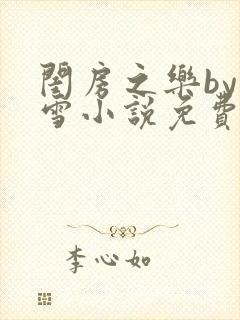 閨房之樂by
雪小說免費
李心如